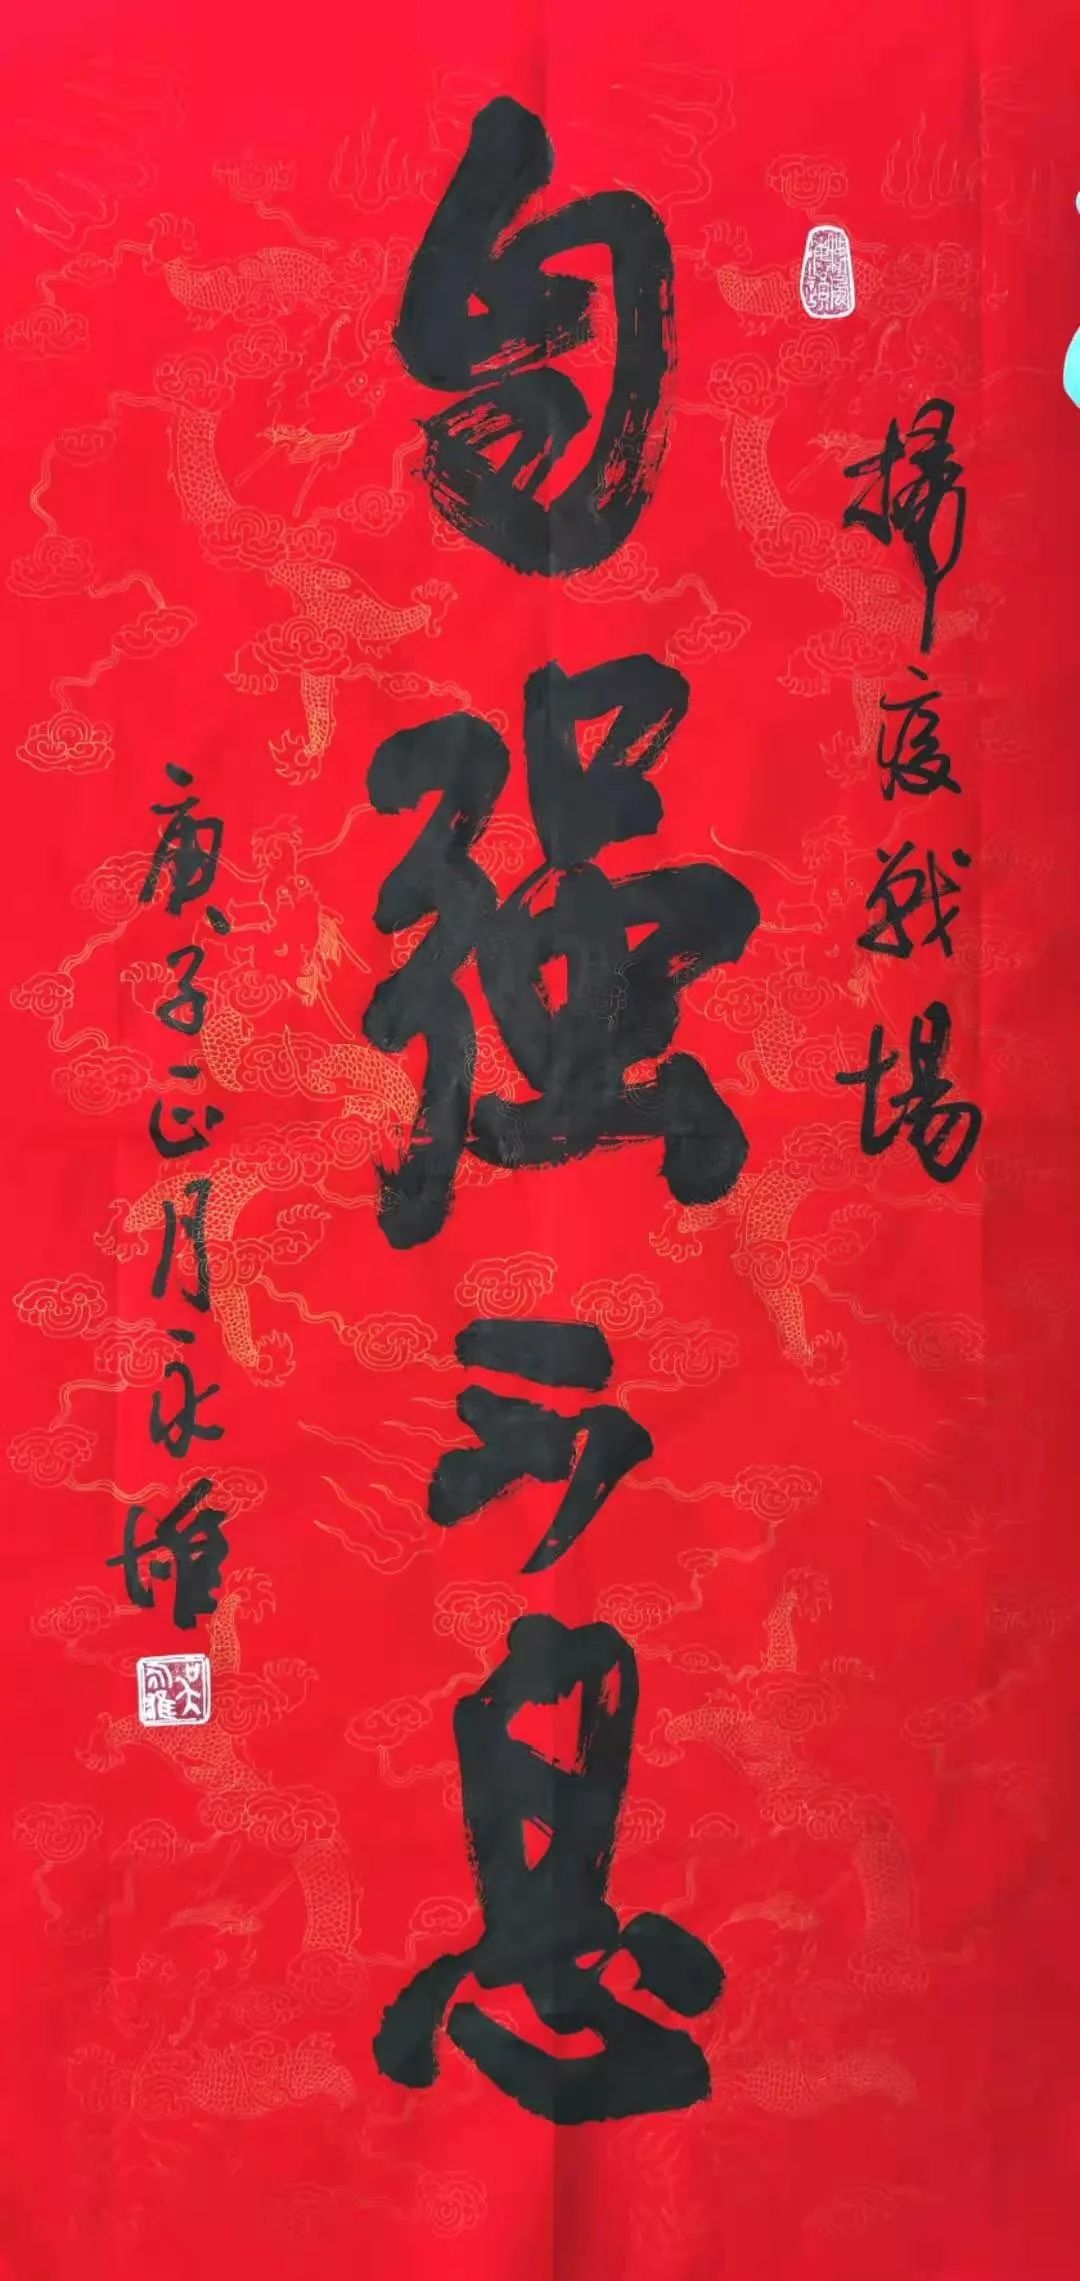 掃疫戰場
自强不息
庚子正月永雄